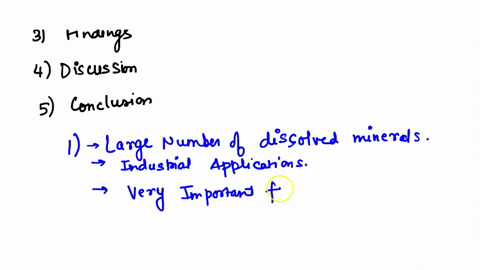 3) Findings
4) Discussion
5) Conclusion
1) → Large Number of dissolved minerals.
→ Industrial Applications.
→ Very Important f